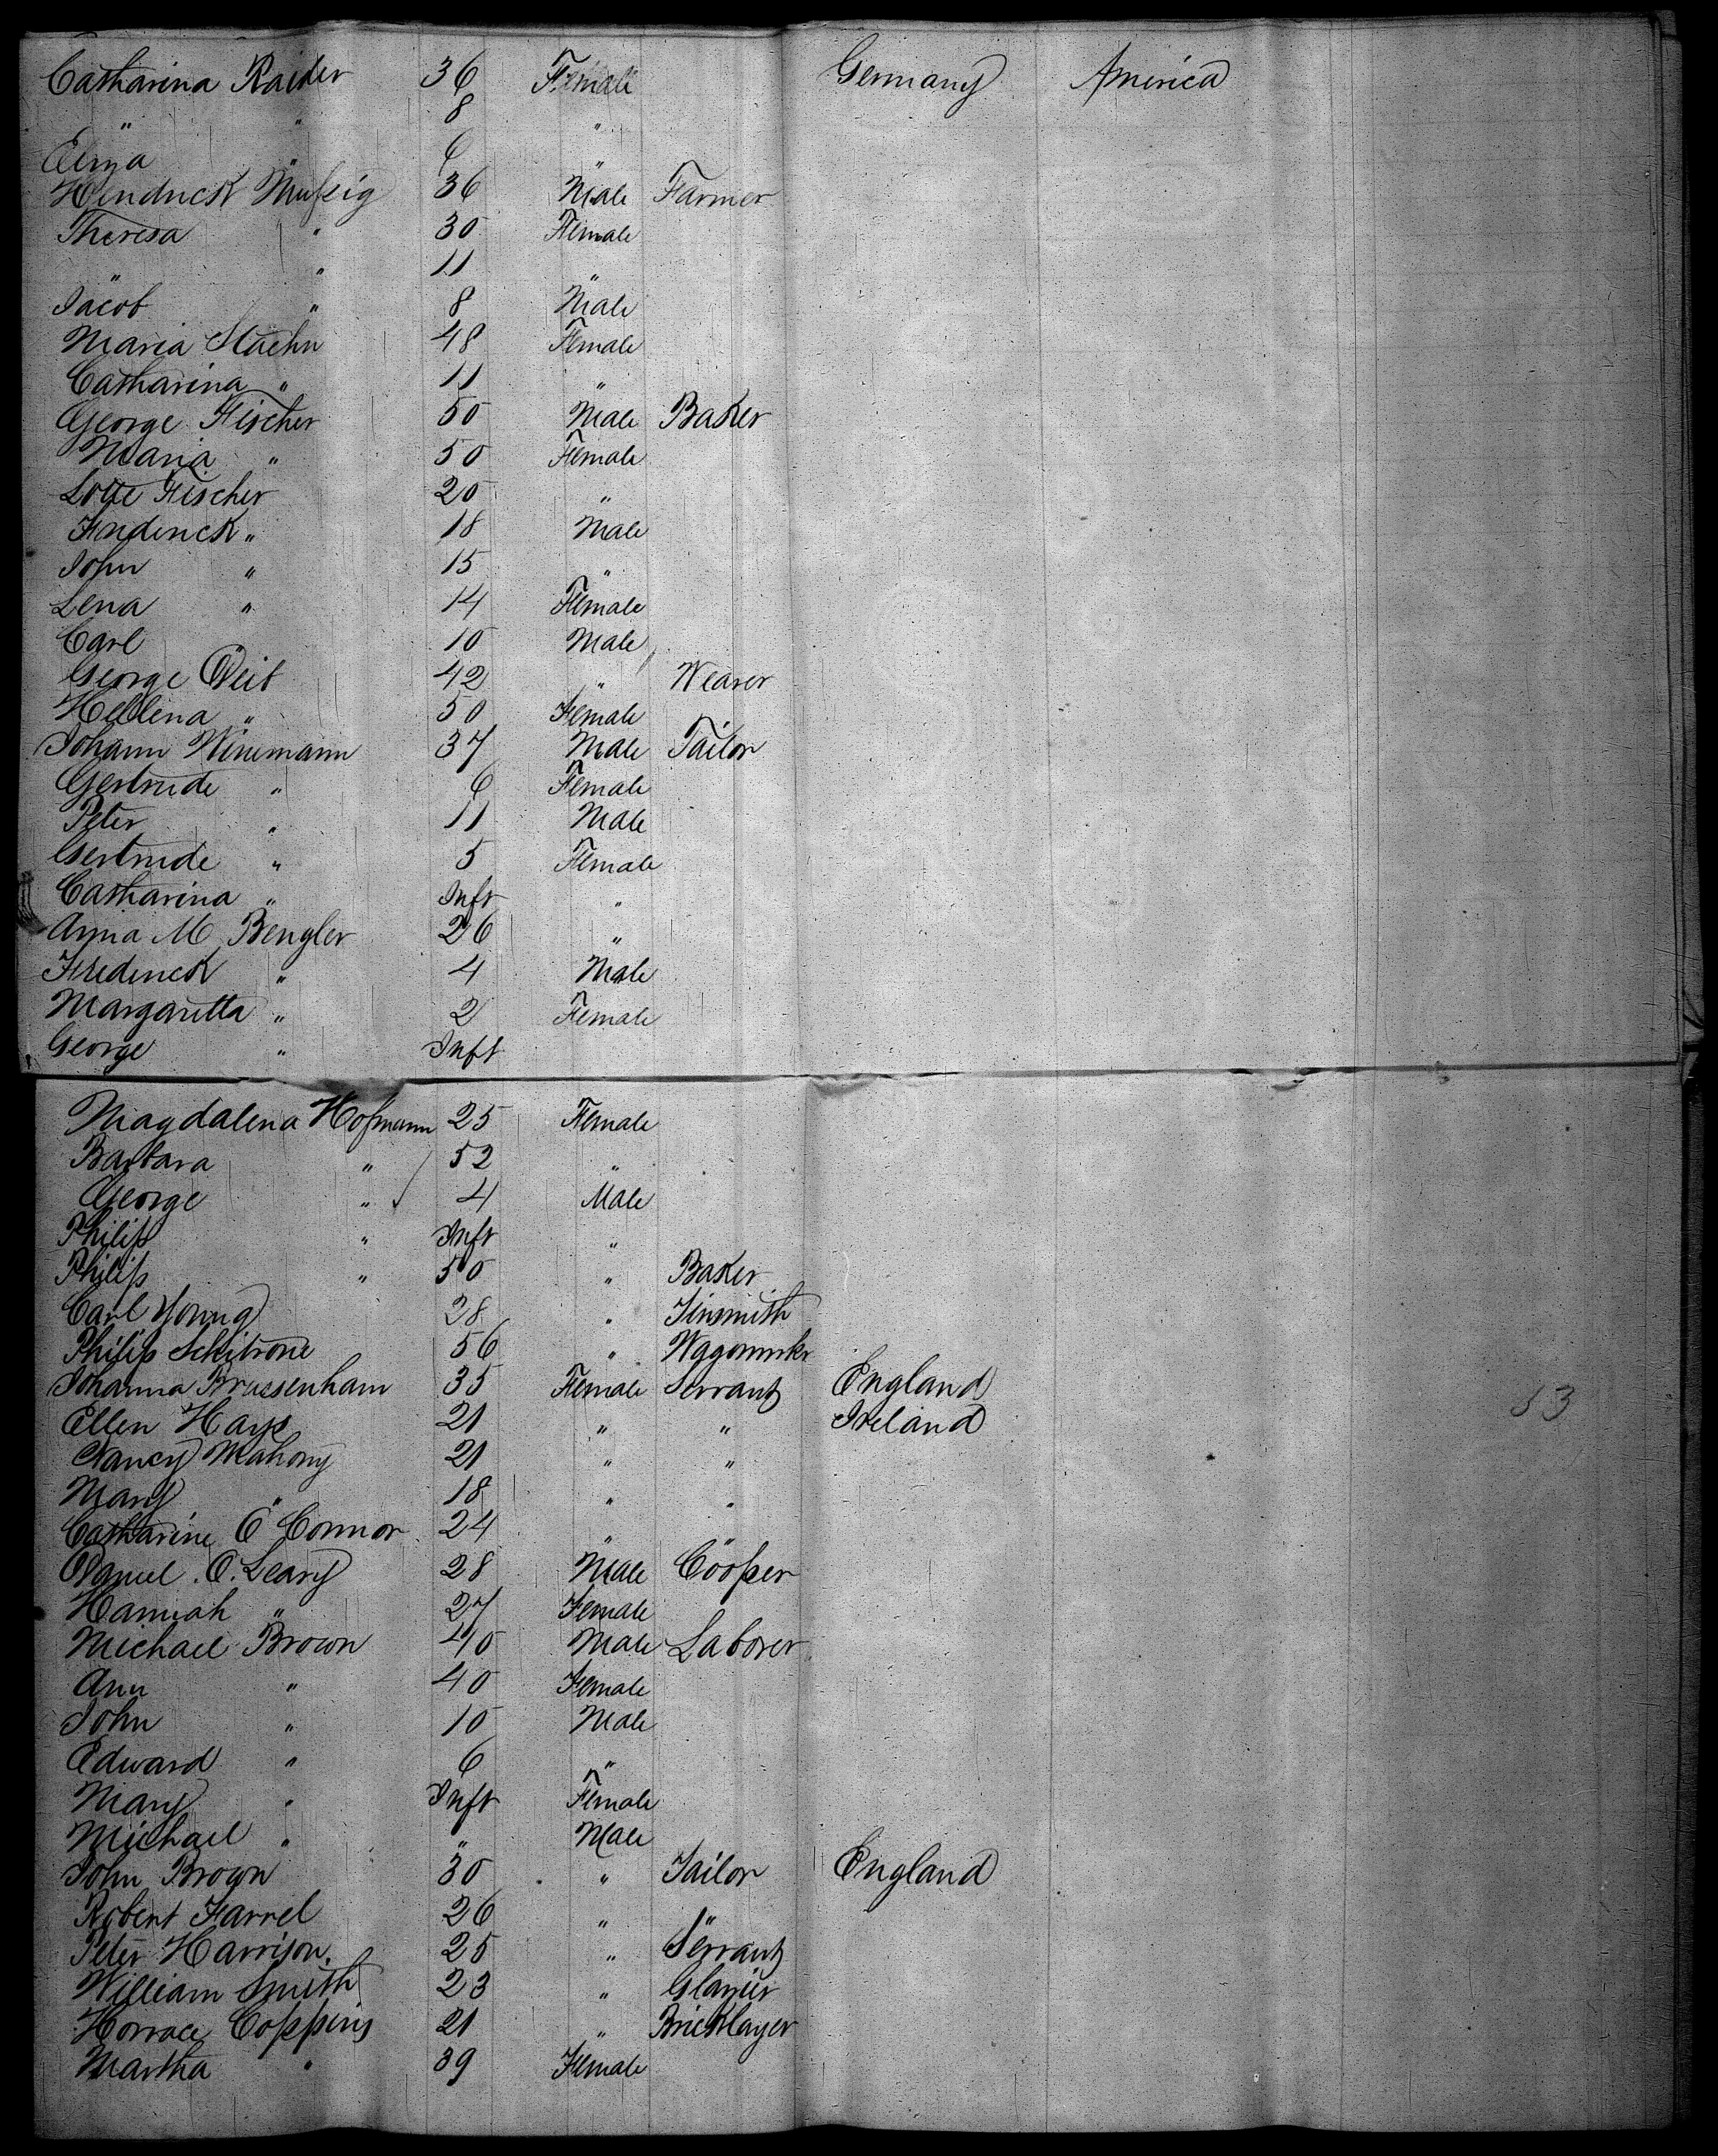 Catharina Raider 36 Female Germany America
" " 8 "
Eliza " 6 "
Hendrick Mußig 36 Male Farmer
Theresa " 30 Female
" " 11 "
Jacob " 8 Male
Maria Staehn 48 Female
Catharina " 11 "
George Fischer 50 Male Baker
Maria " 50 Female
Lotte Fischer 20 "
Frederick " 18 Male
John " 15 "
Lena " 14 Female
Carl " 10 Male
George Veit 42 " Weaver
Hellena " 50 Female
Johann Winemann 37 Male Tailor
Gertrude " 6 Female
Peter " 11 Male
Gertrude " 5 Female
Catharina " Inft "
Anna M Bengler 26 "
Frederick " 4 Male
Margaretta " 2 Female
George " Inft
Magdalena Hofmann 25 Female
Barbara " 52 "
George " 4 Male
Philip " Inft "
Philip " 50 " Baker
Carl Young 28 " Tinsmith
Philip Schitrone 56 " Wagonmkr
Johanna Brussenham 35 Female Servant England
Ellen Hays 21 " " Ireland
Nancy Mahony 21 " "
Mary " 18 " "
Catharine O'Connor 24 " "
Daniel O. Leary 28 Male Cooper
Hannah " 27 Female
Michael Brown 40 Male Laborer
Ann " 40 Female
John " 10 Male
Edward " 6 "
Mary " Inft Female
Michael " " Male
John Brown 30 " Tailor England
Robert Farrel 26 " "
Peter Harrison 25 " Servant
William Smith 23 " Glazier
Horrace Coppins 21 " Bricklayer
Martha " 39 Female